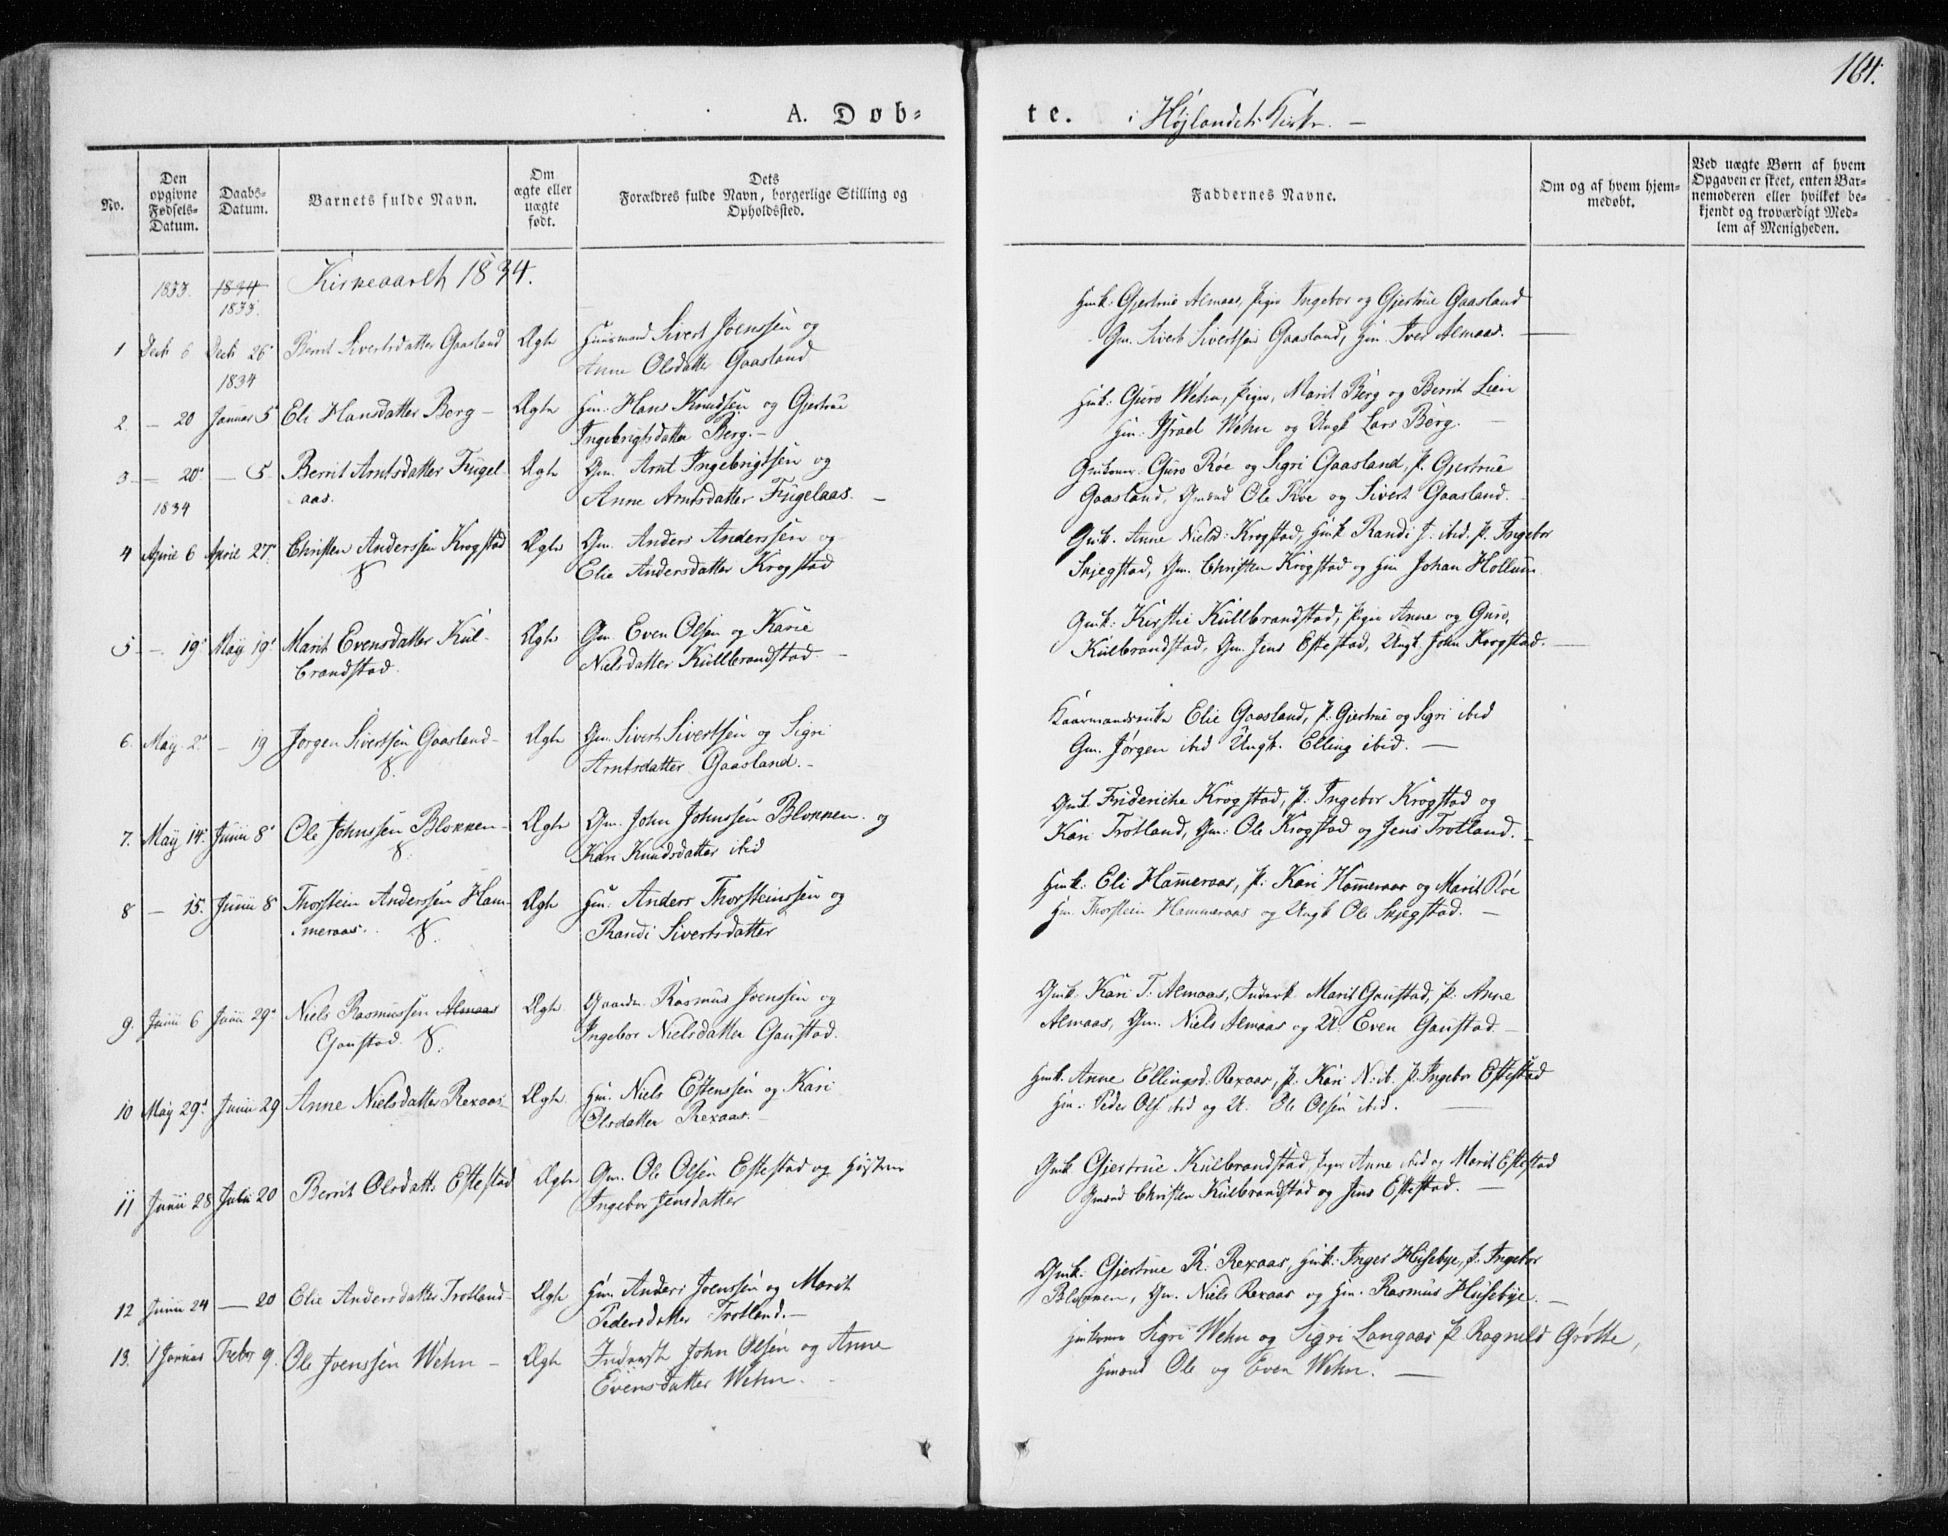 164.
A. Døb-
te. i Høylandets Kirke. —
No.
Den opgivne Fødsels-Datum.
Daabs-Datum.
Barnets fulde Navn.
Om ægte eller uægte født.
Dets Forældres fulde Navn, borgerlige Stilling og Opholdssted.
Faddernes Navne.
Om og af hvem hjem-medøbt.
Ved uægte Børn af hvem
Opgaven er skeet, enten Bar-
nemoderen eller hvilket be-
kjendt og troværdigt Med-
lem af Menigheden.
1833. 1834 Kirkeaaret 1834.
1833.
1 Decb 6 Decb 26 Berrit Sivertsdatter Gaasland Ægte Huusmand Sivert Joenssen og
Anne Olsdatter Gaasland
Hmk: Gjertrue Almaas, Piger Ingebor og Gjertrue Gaasland
Gm. Sivert Sivertsen Gaasland, Hm. Iver Almaas. —
1834
2. — 20 Januar 5 Eli Hansdatter Berg — Ægte Hm. Hans Knudsen og Gjertrue
Ingebrigtsdatter Berg. —
Hmk: Guro Wehn, Piger, Marit Berg og Berrit Lien
Hm. Israel Wehn og Ungk Lars Berg. —
3 — 20 — 5. Berrit Arntsdatter Fugel- Ægte Gm. Arnt Ingebrigtsen og
aas. Anne Arntsdatter Fugelaas. —
Gmkoner Guro Roe og Sigri Gaasland, P. Gjertrue
Gaasland, Gmænd Ole Roe og Sivert Gaasland.
1834
4 Aprie 6 April 27 Christen Anderssen Krogstad Ægte Gm. Anders Anderssen og
Elie Andersdatter Krogstad
Gmk. Anne Nielsd: Krogstad, Hmk Randi J. ibid. P. Ingebor
Skjegstad, Gm. Christen Krogstad og Hm Johan Hollum
5 — 19 May 19 Marit Evensdatter Kül- Ægte Gm Even Olsen og Karie
brandstad. Nielsdatter Küllbrandstad. —
Gmk: Kirstie Küllbrandstad, Piger Anne og Guro,
Külbrandstad, Gm. Jens Estestad, Ungk John Krogstad. —
6. May 2 — 19 Jørgen Sivertsen Gaasland — Ægte Gm. Sivert Sivertsen og Sigri
Arntsdatter Gaasland. —
Kaarmandsenke Elie Gaasland, P. Gjertrue og Sigri ibid
Gm. Jørgen ibid Ungk. Elling ibid. —
7. May 14 Junii 8 Ole Johnssen Blokken — Ægte Gm. John Johnssen Blokken og
Kari Knudsdatter ibid
Gmk. Friderike Krogstad, P. Ingebor Krogstad og
Kari Trotland, Gm: Ole Krogstad og Jens Trotland. —
8 — 15. Junii 8 Thorstein Anderssen Ham- Ægte Hm. Anders Thorsteinssen og
meraas. Randi Sivertsdatter
Hmk: Eli Hammeraas, P. Kari Hammeraas og Marit Roe
Hm. Thorstein Hammeraas og Ungk Ole Skjegstad. —
9. Junii 6 Junii 29 Niels Rasmussen Almaas Ægte Gaardm. Rasmus Joenssen og
Gaustad. Ingebor Nielsdatter Gaustad.
Gmk. Kari T. Almaas, Inderk Marit Gaustad, P. Anne
Almaas, Gm. Niels Almaas og U. Even Gaustad. —
10 May 29 Junii 29 Anne Nielsdatter Rexaas Ægte Hm. Niels Estenssen og Kari
Olsdatter Rexaas. —
Hmk. Anne Ellingsd. Rexaas, P. Kari N. ib. P. Ingebor Estestad
Hm. Peder Ols. ibid og U. Ole Olsen ibid. —
11 Junii 28 Julii 20 Berrit Olsdatt: Estestad Ægte Gm. Ole Olsen Estestad og Hustrue
Ingebor Jensdatter
Gmk Gjertrue Külbrandstad Piger Anne ibid og Marit Estestad
Gmænd Christen Külbrandstad og Jens Estestad. —
12 Junii 24 — 20 Elie Andersdatter Trotland Ægte Hm. Anders Joenssen og Marit
Pedersdatter Trotland. —
Gmk: Gjertrue R. Rexaas, Hmk: Inger Husebye, P. Ingebor
Blokken, Gm. Niels Rexaas og Hm. Rasmus Husebye. —
13. 1 Januar Febr 9. Ole Joenssen Wehn — Ægte Inderst John Olsen og Anne
Evensdatter Wehn.
Hmkoner Sigri Wehn og Sigri Langaas P. Ragnild Grøtte,
Hmænd Ole og Even Wehn. —